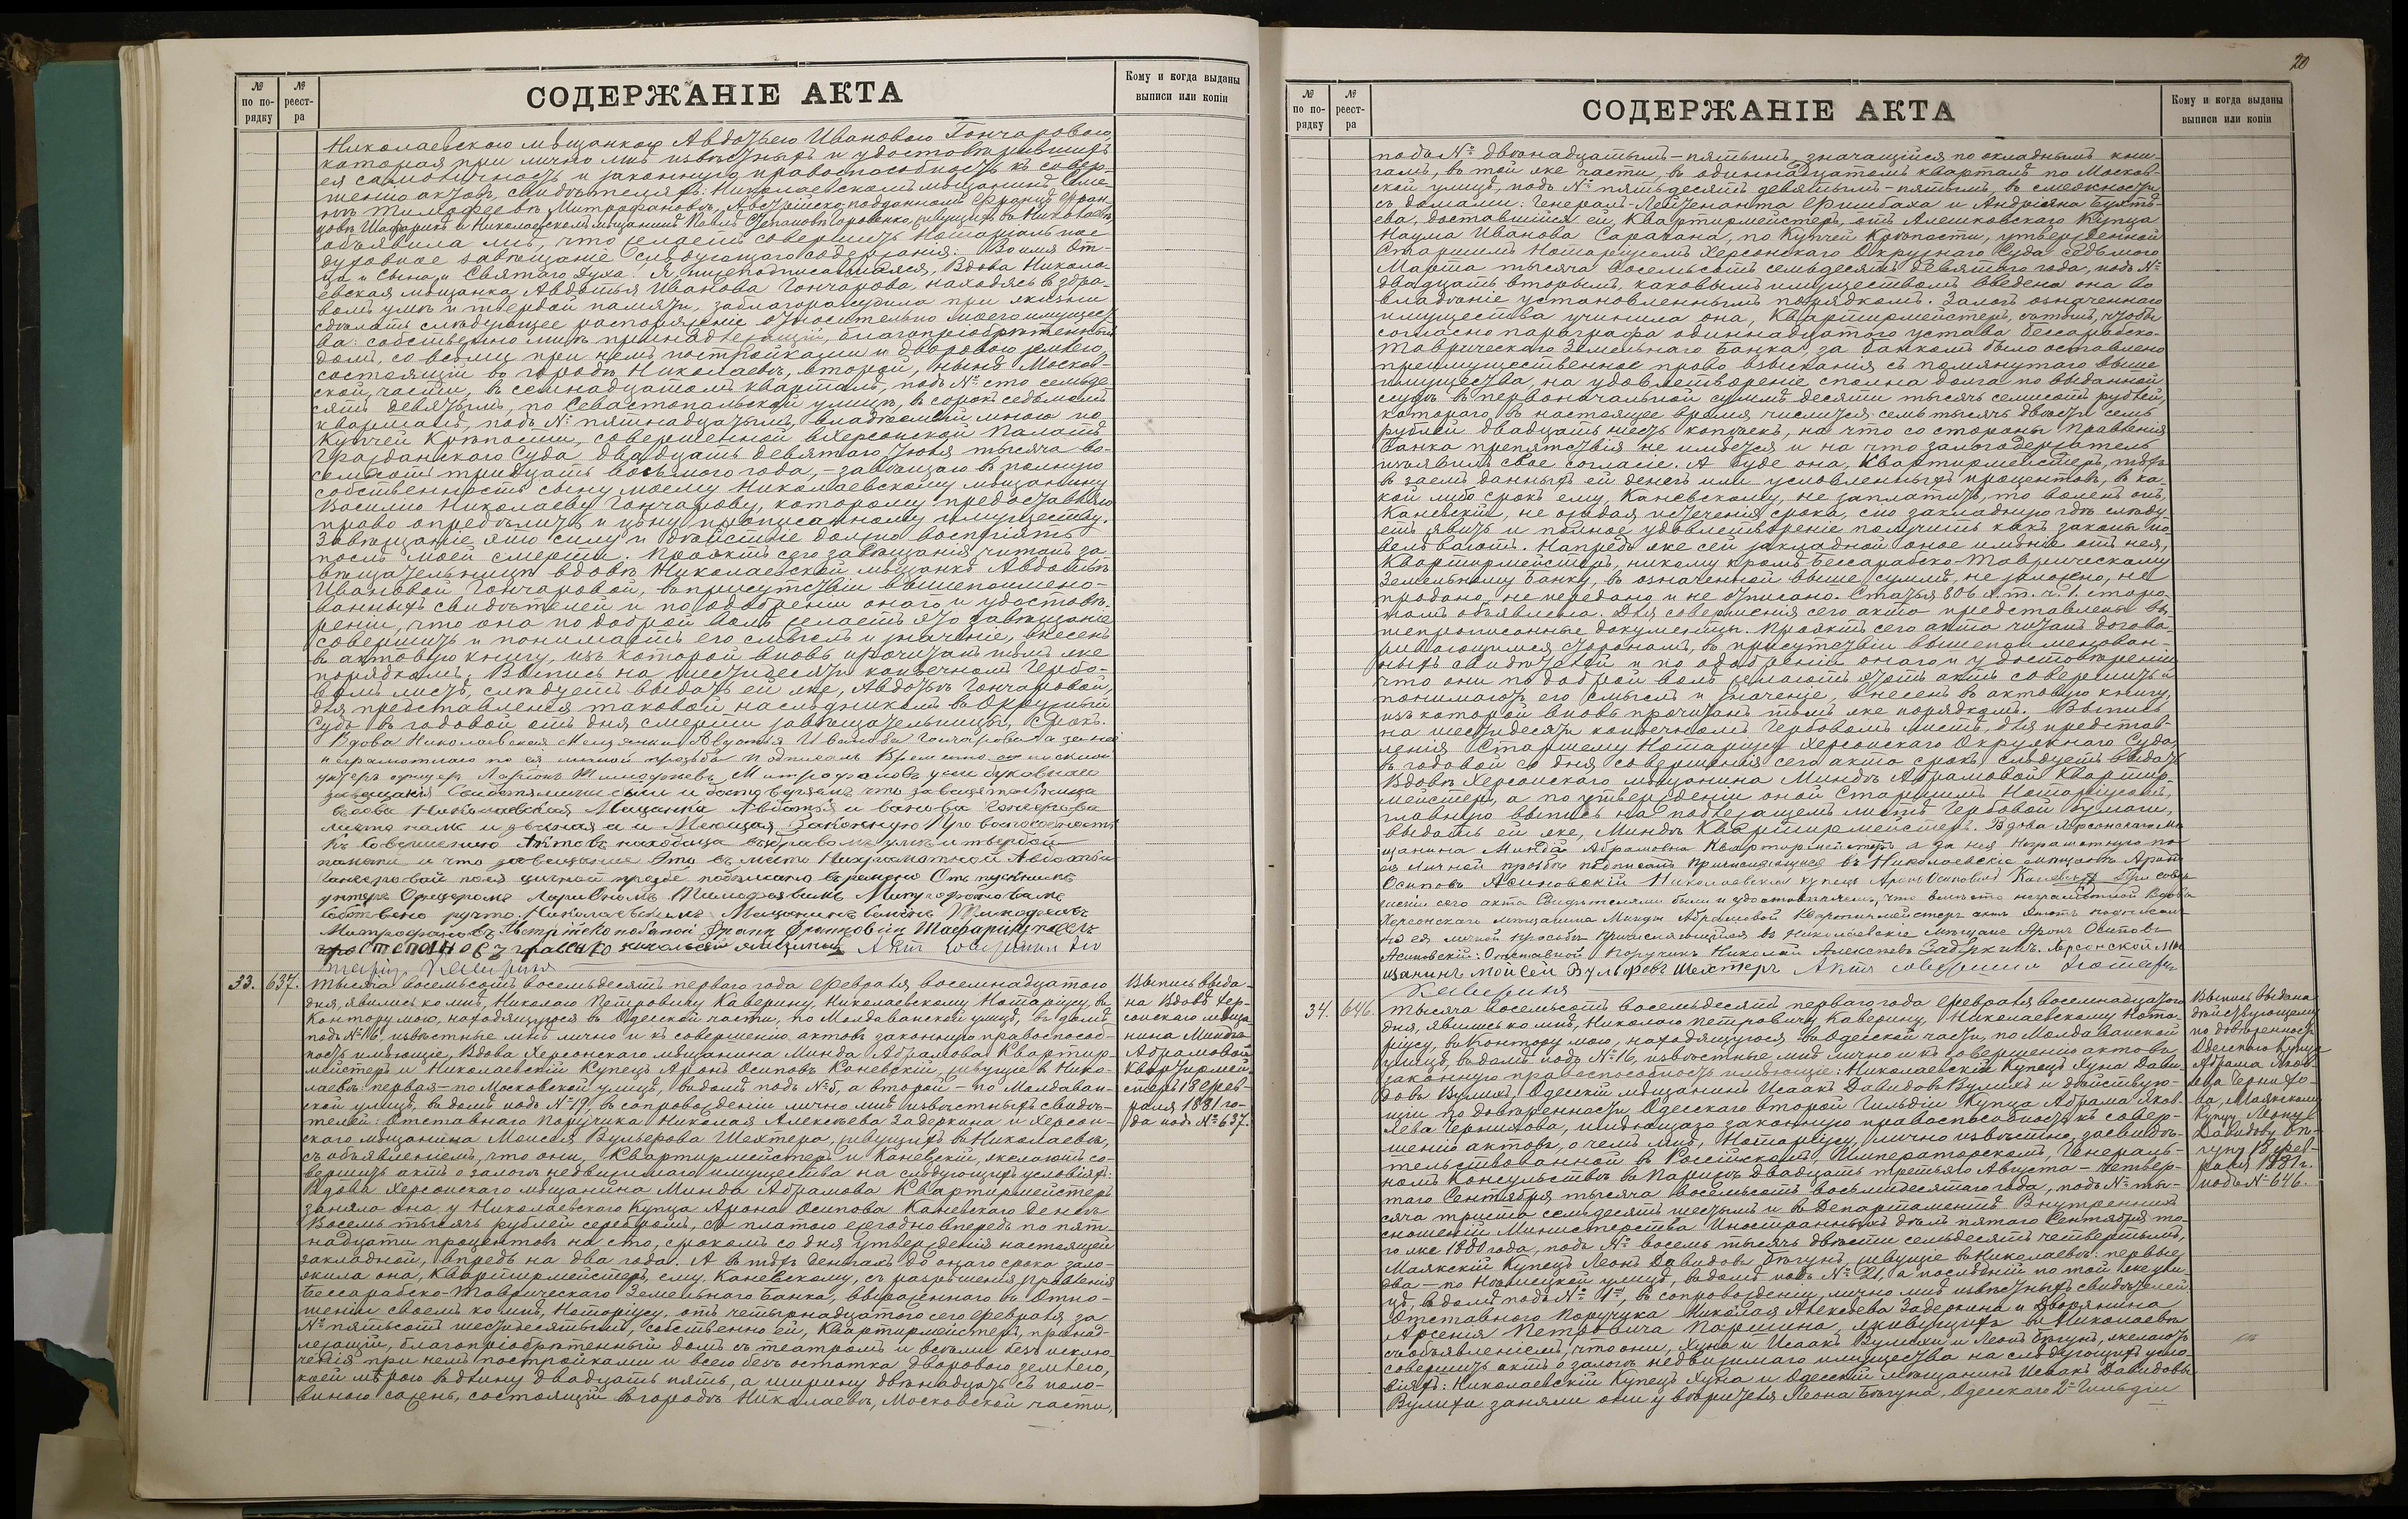 №
по по-
рядку
№
реест-
ра
СОДЕРЖАНІЕ АКТА
Кому и когда выданы
выписи или копіи
Николаевскою мѣщанкою Авдотьею Ивановою Гончаровою,
которая при лично мнѣ извѣстныхъ и удостовѣрившихъ
ея самоличность и законную правоспособность къ совер-
шенію актовъ, свидѣтеляхъ: Николаевскомъ мѣщанинѣ Семе-
нѣ Тимофеевѣ Митрофановѣ, Австрійско подданномъ Францѣ Фран-
цовѣ Шафарикѣ и Николаевскомъ мѣщанинѣ Павлѣ Степановѣ живущихъ въ Николаевѣ,
объявила мнѣ, что желаетъ совершить Нотаріальное
духовное завѣщаніе слѣдующаго содержанія: Во имя От-
ца и Сына и Святаго Духа. Я, нижеподписавшаяся, Вдова Никола-
евская мѣщанка Авдотья Иванова Гончарова, находясь въ здра-
вомъ умѣ и твердой памяти, заблагоразсудила при жизни
сдѣлать слѣдующее распоряженіе относительно моего имущест-
ва: собственно мнѣ принадлежащій, благопріобрѣтенный
домъ, со всѣми при немъ постройками и дворовою землею,
состоящій въ городѣ Николаевѣ, второй, нынѣ Москов-
ской, части, въ семнадцатомъ кварталѣ, подъ № сто семьде-
сятъ девятымъ, по Севастопольской улицѣ, въ сорокъ седьмомъ
кварталѣ, подъ № пятнадцатымъ, владѣемый мною по
Купчей Крѣпости, совершенной въ Херсонской Палатѣ
Гражданскаго Суда двадцать девятаго Іюля тысяча во-
семьсотъ тридцать восьмого года, – завѣщаю въ полную
собственность сыну моему Николаевскому мѣщанину
Василію Николаеву Гончарову, которому предоставляю
право опредѣлить и цѣну прописанному имуществу.
Завѣщаніе это силу и дѣйствіе должно воспріять
послѣ моей смерти. Проэктъ сего завѣщанія читанъ за-
вѣщательницѣ вдовѣ Николаевской мѣщанкѣ Авдотьѣ
Ивановой Гончаровой, въ присутствіи вышепоимено-
ванныхъ свидѣтелей и по одобреніи онаго и удостовѣ-
реніи, что она по доброй волѣ желаетъ это завѣщаніе
совершить и понимаетъ его смыслъ и значеніе, внесенъ
въ актовую книгу, изъ которой вновь прочитанъ тѣмъ же
порядкомъ. Выпись на шестидесяти копѣечномъ Гербо-
вомъ листѣ, слѣдуетъ выдать ей же, Авдотьѣ Гончаровой,
для представленія таковой наслѣдникомъ въ Окружный
Судъ въ годовой отъ дня смерти завѣщательницы, срокъ.
Вдова Николаевская Мещанка Авдотья Иванова Гончарова а за нее
неграмотную по ея личной прозьбѣ подписалъ Временно отпускной
унтеръ офицеръ Ларіонъ Тимофеевъ Митрофановъ
завещанія Свидетелями были и удостоверяемъ что завещательница
вдова Николаевская Мещанка Авдотья Иванова Гончарова
лично намъ известная и имеющая Законную Правоспособность
къ Совершению Актовъ находица въ здравомъ уме и твердой
памяти и что завещание Это вместо Неграмотной Авдотьи
Гончаровой по ея личной прозбе подписано временно Отпускнымъ
унтеръ Офицеромъ Ларионымъ Тимофеевымъ Митрофановымъ
собственно ручно. Николаевскимъ Мещанинъ Семенъ Тимофеевъ
Митрофановъ Австрійско подданой Франц Францовичъ Шафарикъ Павелъ
Степановъ николаевс мещанинъ Актъ совершилъ Но-
таріусъ Каверинъ
33. 637. Тысяча восемьсотъ восемьдесятъ перваго года Февраля восемнадцатаго
дня, явились ко мнѣ, Николаю Петровичу Каверину, Николаевскому Нотаріусу, въ
Контору мою, находящуюся въ Одесской части, по Молдаванской улицѣ, въ домѣ
подъ № 16, извѣстные мнѣ лично и къ совершенію актовъ законную правоспособ-
ность имѣющіе, Вдова Херсонскаго мѣщанина Минда Абрамова Квартир-
мейстеръ и Николаевскій Купецъ Аронъ Осиповъ Каневскій, живущіе въ Нико-
лаевѣ: первая – по Московской улицѣ, въ домѣ подъ № 5, а второй – по Молдаван-
ской улицѣ, въ домѣ подъ № 19, въ сопровожденіи лично мнѣ извѣстныхъ свидѣ-
телей: Отставнаго Поручика Николая Алексѣева Задеркина и Херсон-
скаго мѣщанина Моисея Вульфова Шехтера, живущихъ въ Николаевѣ,
съ объявленіемъ, что они, Квартирмейстеръ и Каневскій, желаютъ со-
вершить актъ о залогѣ недвижимаго имущества на слѣдующихъ условіяхъ:
Вдова Херсонскаго мѣщанина Минда Абрамова Квартирмейстеръ
заняла она у Николаевскаго Купца Арона Осипова Каневскаго денегъ
Восемь тысячъ рублей серебромъ, съ платою ежегодно впередъ по пят-
надцати процентовъ на сто, срокомъ со дня утвержденія настоящей
закладной, впредь на два года. А въ тѣхъ деньгахъ до онаго срока зало-
жила она, Квартирмейстеръ, ему, Каневскому, съ разрѣшенія правленія
Бессарабско-Таврическаго Земельнаго Банка, выраженнаго въ Отно-
шеніи своемъ ко мнѣ, Нотаріусу, отъ четырнадцатаго сего Февраля за
№ пятьсотъ шестидесятымъ, собственно ей, Квартирмейстеръ, принад-
лежащій, благопріобрѣтенный домъ съ театромъ и всѣми безъ исклю-
ченія при немъ постройками и всею безъ остатка дворовою землею,
коей мѣрою въ длину двадцать пять, а ширину двѣнадцать съ поло-
виною сажень, состоящій въ городѣ Николаевѣ, Московской части,
Выпись выда-
на Вдовѣ Хер-
сонскаго мѣща-
нина Миндѣ
Абрамовой
Квартирмей-
стеръ 18 Фев-
раля 1881 го-
да подъ № 637.
20
№
по по-
рядку
№
реест-
ра
СОДЕРЖАНІЕ АКТА
Кому и когда выданы
выписи или копіи
подъ № двѣнадцатымъ – пятымъ, значащійся по окладнымъ кни-
гамъ, въ той же части, въ одиннадцатомъ кварталѣ по Москов-
ской улицѣ, подъ № пятьдесятъ девятымъ – пятымъ, въ смежности
съ домами: Генералъ-Лейтенанта Фришбаха и Андріяна Бухтѣ-
ева, доставшійся ей, Квартирмейстеръ, отъ Алешковскаго Купца
Наума Иванова Сарачана, по Купчей Крѣпости, утвержденной
Старшимъ Нотаріусомъ Херсонскаго Окружнаго Суда седьмого
Марта тысяча восемьсотъ семьдесятъ девятаго года, подъ №
двадцать вторымъ, каковымъ имуществомъ введена она во
владѣніе установленнымъ порядкомъ. Залогъ означеннаго
имущества учинила она, Квартирмейстеръ, съ тѣмъ, чтобы
согласно параграфа одиннадцатаго устава Бессарабско-
Таврическаго Земельнаго Банка, за банкомъ было оставлено
преимущественное право взысканія съ помянутаго выше
имущества, на удовлетвореніе сполна долга по выданной
ссудѣ въ первоначальной суммѣ десяти тысячъ семисотъ рублей,
котораго въ настоящее время числится семь тысячъ двѣсти семь
рублей двадцать шесть копѣекъ, на что со стороны Правленія
Банка препятствія не имѣется и на что залогодержатель
изъявилъ свое согласіе. А буде она, Квартирмейстеръ, тѣхъ
въ заемъ данныхъ ей денегъ или условленныхъ процентовъ, въ ка-
кой либо срокъ ему, Каневскому, не заплатитъ, то воленъ онъ,
Каневскій, не ожидая истеченія срока, сію закладную гдѣ слѣду-
етъ явить и полное удовлетвореніе получить какъ законы по-
велѣваютъ. Напредь же сей закладной оное имѣніе отъ нея,
Квартирмейстеръ, никому кромѣ Бессарабско-Таврическому
Земельному Банку, въ означенной выше суммѣ, не заложено, не
продано, не передано и не описано. Статья 806 X т. ч. 1. сторо-
намъ объявлена. Для совершенія сего акта представлены вы-
шепрописанные документы. Проэктъ сего акта читанъ догова-
ривающимся сторонамъ, въ присутствіи вышепоименован-
ныхъ свидѣтелей и по одобреніи онаго и удостовѣреніи
что они по доброй волѣ желаютъ этотъ актъ совершить и
понимаютъ его смыслъ и значеніе, внесенъ въ актовую книгу,
изъ которой вновь прочитанъ тѣмъ же порядкомъ. Выпись
на шестидесяти копѣечномъ Гербовомъ листѣ, для представ-
ленія Старшему Нотаріусу Херсонскаго Окружнаго Суда,
въ годовой со дня совершенія сего акта срокъ, слѣдуетъ выдать
Вдовѣ Херсонскаго мѣщанина Миндѣ Абрамовой Квартир-
мейстеръ, а по утвержденіи оной Старшимъ Нотаріусомъ,
главную выпись на подлежащемъ листѣ Гербовой бумаги,
выдать ей же, Миндѣ Квартирмейстеръ. Вдова Херсонскаго мѣ-
щанина Минда Абрамовна Квартирмейстеръ а за нея Неграмотную по
ея личной просьбѣ подписалъ причисляющійся въ Николаевскіе мѣщане Аронъ
Осиповъ Асиновскій Николаевскій купецъ Аронъ Осиповъ Каневскій При совер-
шеніи сего акта Свидѣтелями были и удостовѣряемъ, что вмѣсто неграмотной Вдовы
Херсонскаго мѣщанина Минды Абрамовой Квартирмейстеръ актъ этотъ подписалъ
по ея личной просьбѣ причисляющійся въ Николаевскіе мѣщане Аронъ Осиповъ
Асиновскій: Отставной Поручикъ Николай Алексѣевъ Задеркинъ. Херсонской мѣ-
щанинъ Мойсей Вульфовъ Шехтеръ Актъ совершилъ Нотаріусъ
Каверинъ
34. 646. Тысяча восемьсотъ восемьдесятъ перваго года Февраля восемнадцатаго
дня, явились ко мнѣ, Николаю Петровичу Каверину, Николаевскому Нота-
ріусу, въ Контору мою, находящуюся въ Одесской части, по Молдаванской
улицѣ, въ домѣ подъ № 16, извѣстные мнѣ лично и къ совершенію актовъ
законную правоспособность имѣющіе: Николаевскій Купецъ Хуна Дави-
довъ Вулихъ, Одесскій мѣщанинъ Исаакъ Давидовъ Вулихъ и дѣйствую-
щій по довѣренности Одесскаго второй Гильдіи Купца Абрама Яков-
лева Чернихова, имѣющаго законную правоспособность къ совер-
шенію актовъ, о чемъ мнѣ, Нотаріусу, лично извѣстно, засвидѣ-
тельствованной въ Россійскомъ Императорскомъ Генераль-
номъ Консульствѣ въ Парижѣ двадцать третьяго Августа – четвер-
таго Сентября тысяча восемьсотъ восьмидесятаго года, подъ № ты-
сяча триста семьдесятъ шестымъ и въ Департаментѣ Внутреннихъ
сношеній Министерства Иностранныхъ дѣлъ пятаго Сентября то-
го же 1880 года, подъ № восемь тысячъ двѣсти семьдесятъ четвертымъ,
Маякскій Купецъ Леонъ Давидовъ Бѣгунъ, живущіе въ Николаевѣ: первые
два – по улицѣ, въ домѣ подъ № 21, а послѣдній по той же ули-
цѣ, въ домѣ подъ № 1й, въ сопровожденіи, лично мнѣ извѣстныхъ свидѣтелей:
Отставного Поручика Николая Алексѣева Задеркина и Дворянина
Арсенія Петровича Паршина, живущихъ въ Николаевѣ
съ объявленіемъ, что они, Хуна и Исаакъ Вулихи и Леонъ Бѣгунъ, желаютъ
совершить актъ о залогѣ недвижимаго имущества на слѣдующихъ усло-
віяхъ: Николаевскій Купецъ Хуна и Одесскій мѣщанинъ Исаакъ Давидовы
Вулихи заняли они у вѣрителя Леона Бѣгуна, Одесскаго 2й Гильдіи
Выпись выдана
дѣйствующему
по довѣренности
Одесскаго Купца
Абрама Яков-
лева Чернихо-
ва, Маякскому
Купцу Леону
Давидову Бѣ-
гуну 18 Фев-
раля 1881 г.
подъ № 646.